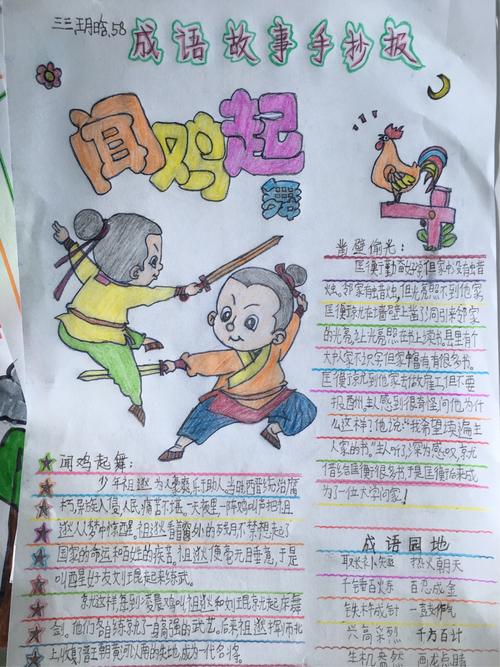 成语故事手抄报
闻鸡起
舞
凿壁偷光:
匡衡勤奋好学但家中没有蜡
烛。邻家有蜡烛,但光亮照不到他家,
匡衡就在墙壁上凿了洞引来邻家
的光亮,让光亮照在书上读书县里有个
大户人家不识字但家中富有有很多书。
匡衡就到他家去做雇工但不要
报酬。主人感到很奇怪问他为什
么这样?他说:"我希望读遍主
人家的书。"主人听了,深为感叹,就
借给匡衡很多书于是匡衡后来成
为了一位大学问家!
闻鸡起舞:
少年祖逖为人豪爽乐于助人当时西晋政治腐
朽,异族入侵,人民痛苦不堪。一天夜里一阵鸡叫声把祖
逖从梦中惊醒。祖逖看着窗外的残月禁想起了
国家的命运和百姓的疾苦。祖逖便毫无目垂危,于是
叫西星好友刘琨起来练武。
就这样每到凌晨鸡叫祖逖和刘琨就起床舞
剑。他们各自练就了一身高强的武艺。后来祖逖挥师北
上,收复了晋王朝黄河以南的失地,成为一代名将。
成语园地
取长补短 热火朝天
千锤百炼 百忍成金
铁杵成针 一鼓作气
兴高采烈 千方百计
生机勃然 画龙点睛